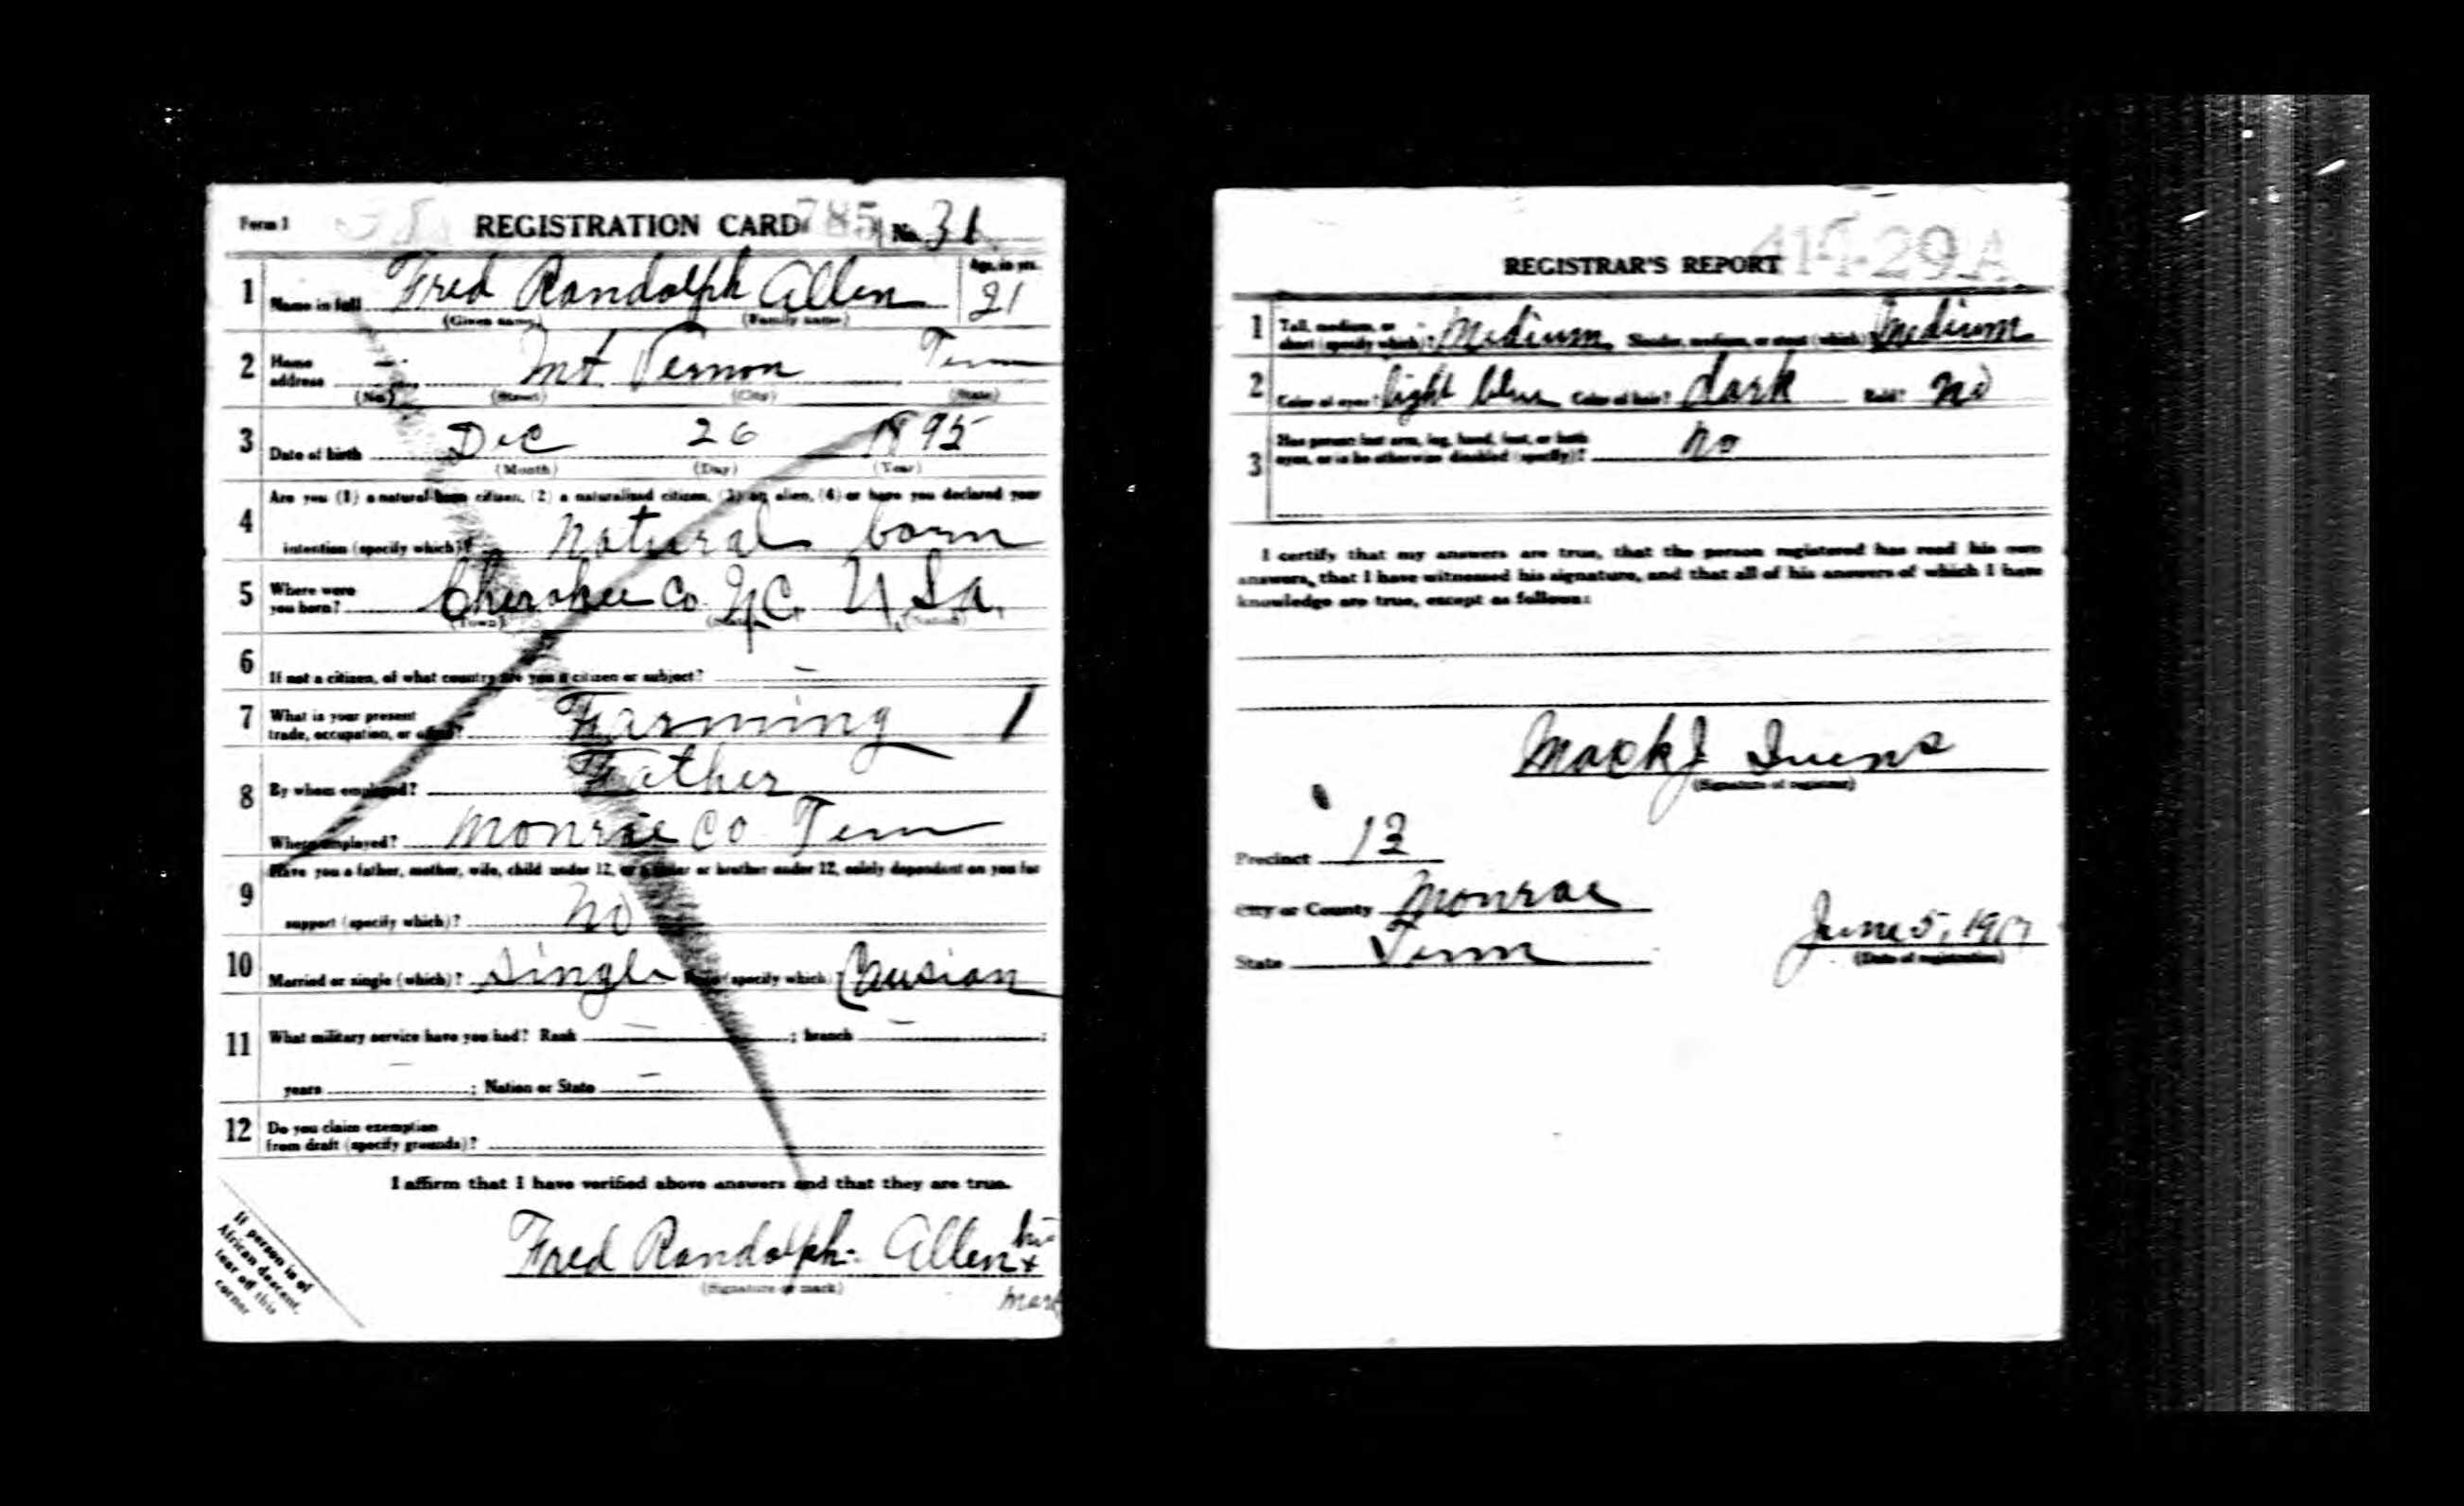 Form 1 REGISTRATION CARD 785 No. 31
1 Name in full Fred Randolph Allen Age, in yrs. 21
(Given name) (Family name)
2 Home address Mt Vernon Tenn
(No.) (Street) (City) (State)
3 Date of birth Dec 26 1895
(Month) (Day) (Year)
Are you (1) a natural-born citizen, (2) a naturalized citizen, (3) an alien, (4) or have you declared your
4 intention (specify which)? Natural born
5 Where were you born? Cherokee Co N.C. U.S.a.
(Town) (State) (Nation)
6 If not a citizen, of what country are you a citizen or subject? -
7 What is your present trade, occupation, or office? Farming 1
8 By whom employed? Father
Where employed? Monroe Co Tenn
Have you a father, mother, wife, child under 12, or a sister or brother under 12, solely dependent on you for
9 support (specify which)? No
10 Married or single (which)? Single Race (specify which)? Causian
11 What military service have you had? Rank - ; branch - ;
years - ; Nation or State -
12 Do you claim exemption
from draft (specify grounds)?
I affirm that I have verified above answers and that they are true.
Fred Randolph Allen his x
(Signature or mark) mark
If person is of
African descent,
tear off this
corner
REGISTRAR'S REPORT 29 A
1 Tall, medium, or short (specify which)? Medium Slender, medium, or stout (which)? Medium
2 Color of eyes? light blue Color of hair? dark Bald? No
Has person lost arm, leg, hand, foot, or both
3 eyes, or is he otherwise disabled (specify)? No
I certify that my answers are true, that the person registered has read his own
answers, that I have witnessed his signature, and that all of his answers of which I have
knowledge are true, except as follows:
Mack J Ivens
(Signature of registrar)
Precinct 13
City or County Monroe
State Tenn June 5, 1917
(Date of registration)